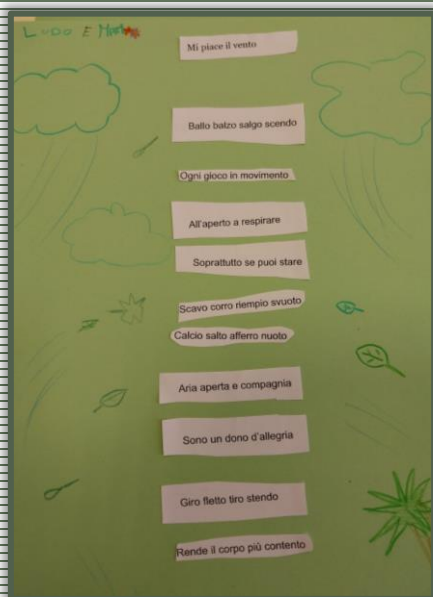 LUDO E
Mi piace il vento
Ballo balzo salgo scendo
Ogni gioco in movimento
All'aperto a respirare
Soprattutto se puoi stare
Scavo corro riempio svuoto
Calcio salto afferro nuoto
Aria aperta e compagnia
Sono un dono d'allegria
Giro fletto tiro stendo
Rende il corpo più contento